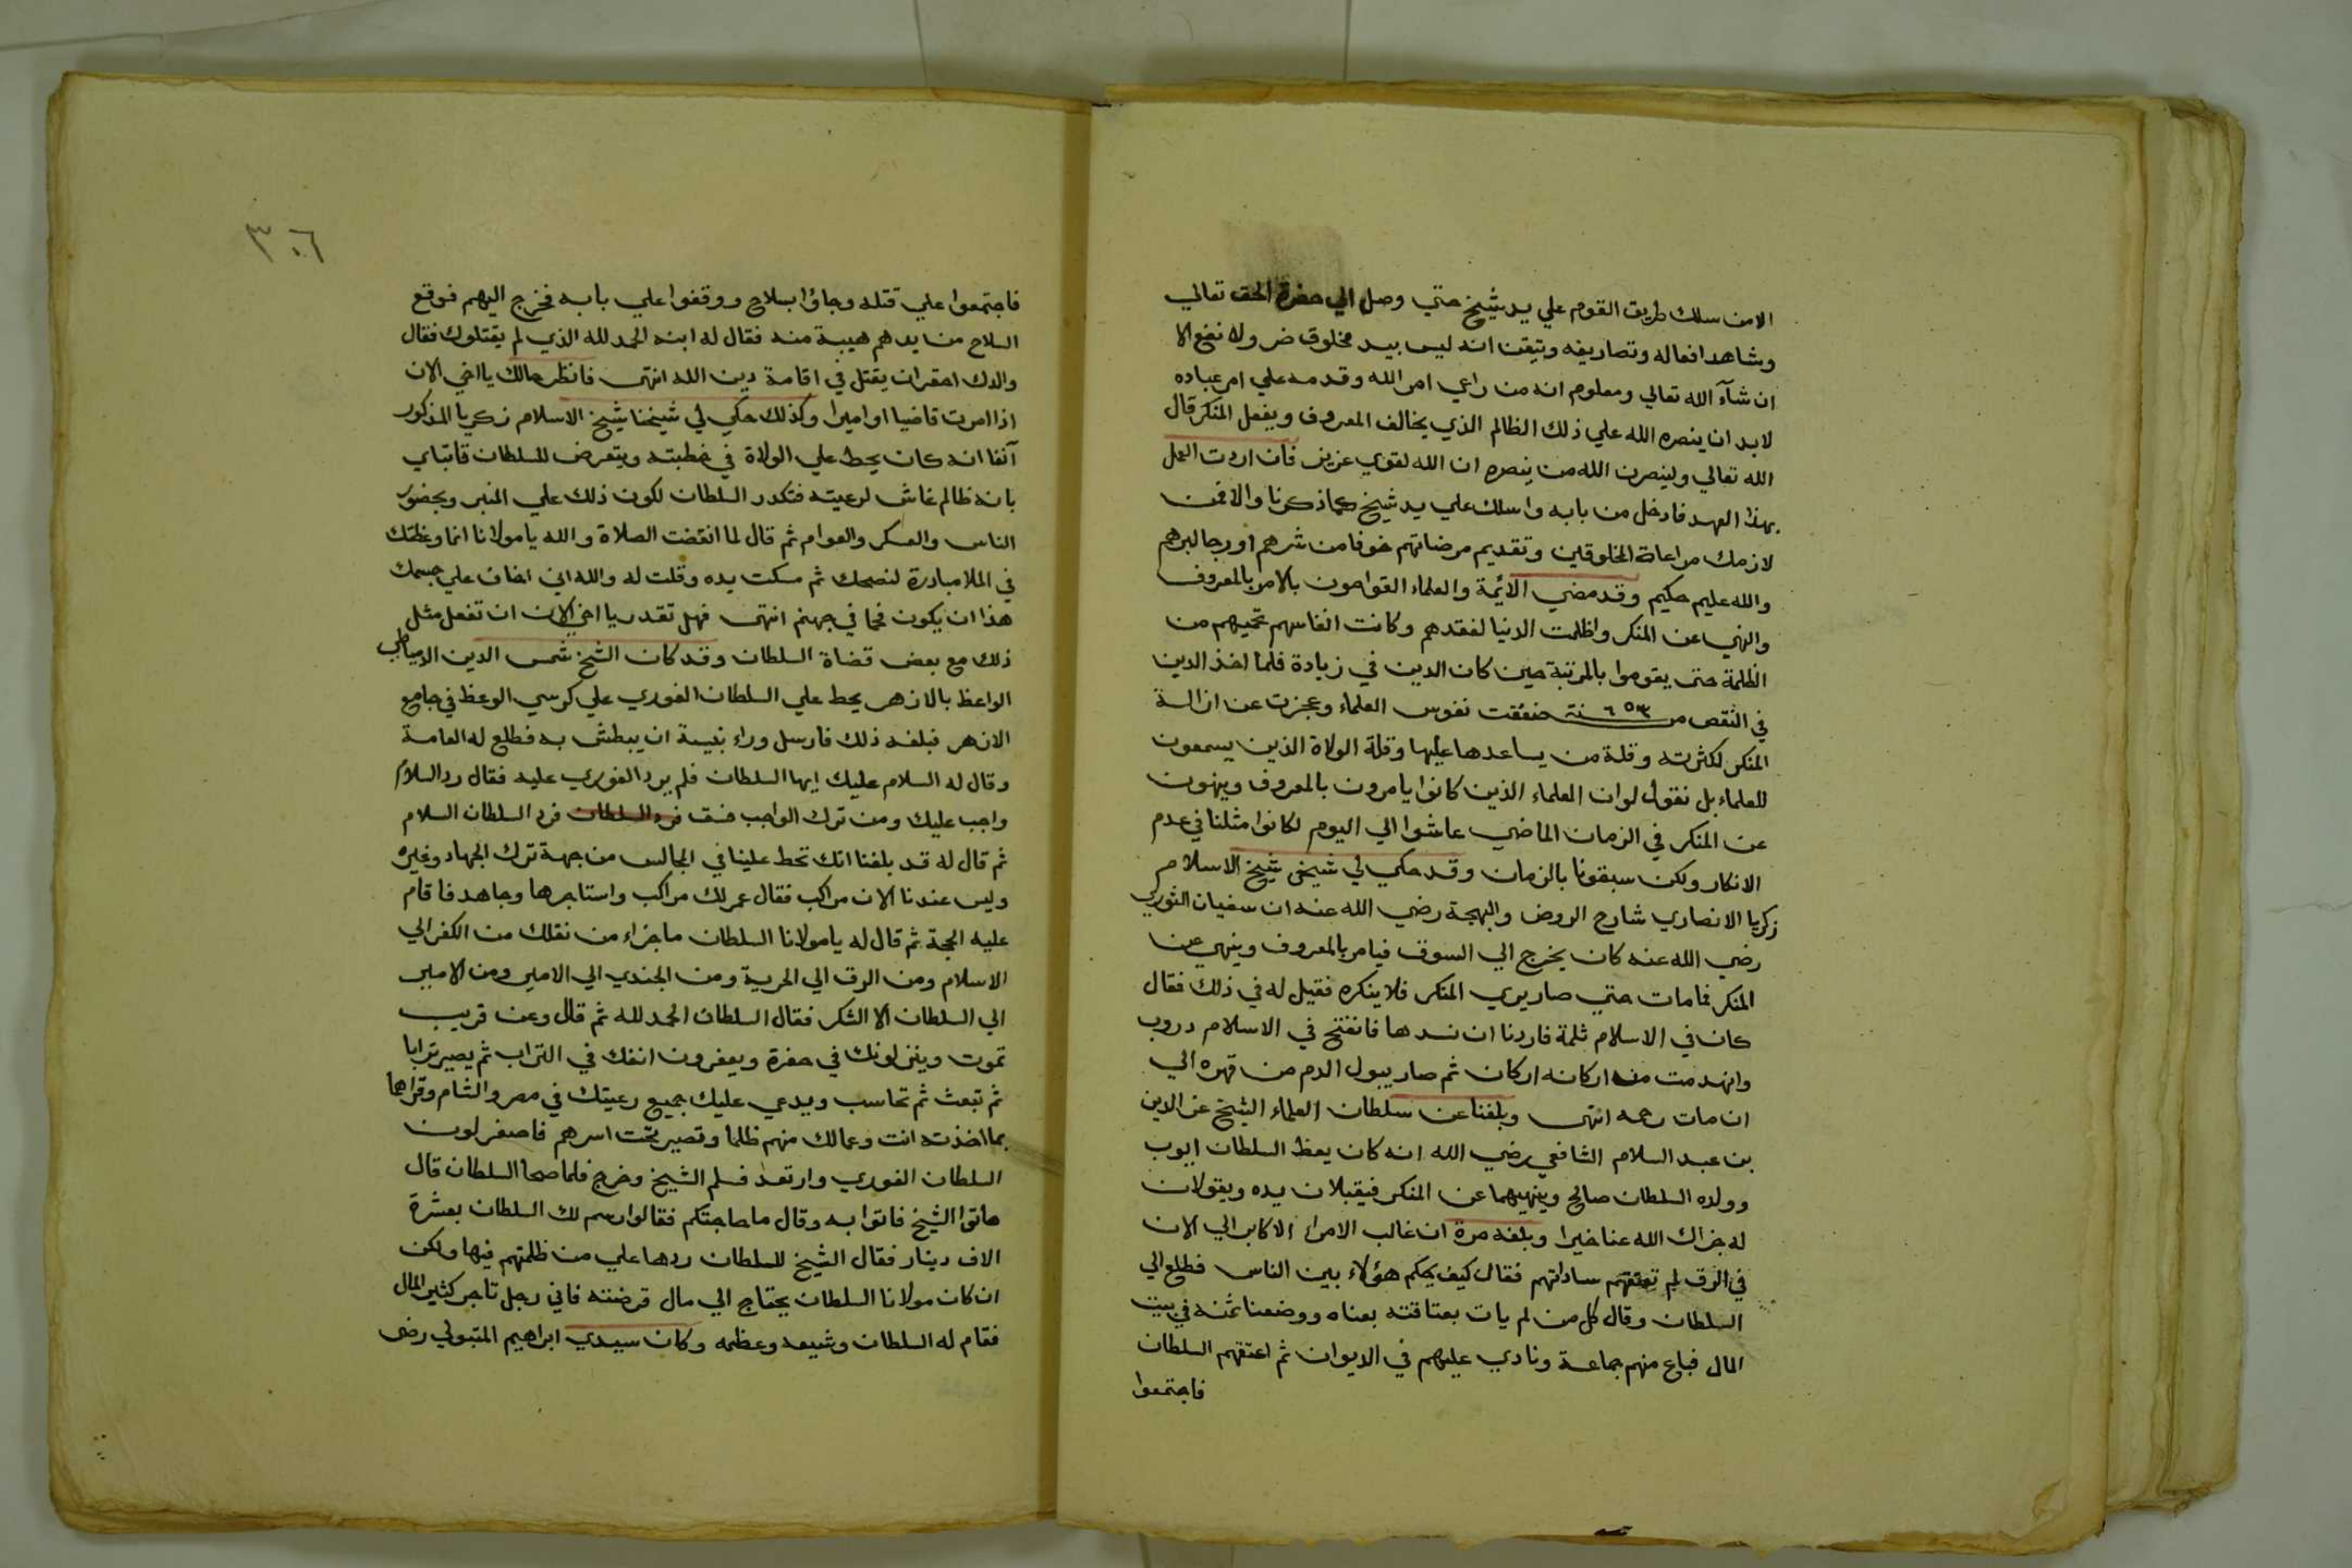 الا من سلك طريق القوم علي يد شيخ حتي وصل الي حضرة الحق تعالي
وشاهد افعاله وتصاريفه وتيقن انه ليس بيد مخلوق ضر ولا نفع الا
ان شآء الله تعالي ومعلوم انه من راعي امر الله وقدمه علي امر عباده
لابد ان ينصره الله علي ذلك الظالم الذي يخالف المعروف ويفعل المنكر قال
الله تعالي ولينصرن الله من ينصره ان الله لقوي عزيز فان اردت العمل
بهذا العهد فادخل من بابه واسلك علي يد شيخ كما ذكرنا والا فمن
لازمك مراعاة المخلوقين وتقديم مرضاتهم خوفا من شرهم او رجا لبرهم
والله عليم حكيم وقد مضي الائمة والعلماء القوامون بالامر بالمعروف
والنهي عن المنكر واظلمت الدنيا لفقدهم وكانت انفاسهم تحميهم من
الظلمة حتى يقوموا بالمرتبة حين كان الدين في زيادة فلما اخذ الدين
في النقص من سنة ٦٥٣ ضعفت نفوس العلماء وعجزت عن ازالة
المنكر لكثرته وقلة من يساعدها عليها وقلة الولاة الذين يسمعون
للعلماء بل نقول لوان العلماء الذين كانوا يامرون بالمعروف وينهون
عن المنكر في الزمان الماضي عاشوا الي اليوم لكانوا مثلنا في عدم
الانكار ولكن سبقونا بالزمان وقد حكي لي شيخى شيخ الاسلام
زكريا الانصاري شارح الروض والبهجة رضي الله عنه ان سفيان الثوري
رضي الله عنه كان يخرج الي السوق فيامر بالمعروف وينهي عن
المنكر فما مات حتي صار يري المنكر فلا ينكره فقيل له في ذلك فقال
كان في الاسلام ثلمة فاردنا ان نسدها فانفتح في الاسلام دروب
وانهدمت من اركانه اركان ثم صار يبول الدم من قهره الي
ان مات رحمه انتهى وبلغنا عن سلطان العلماء الشيخ عز الدين
بن عبد السلام الشافعي رضي الله انه كان يعظ السلطان ايوب
وولده السلطان صالح وينهيهما عن المنكر فيقبلان يده ويقولان
له جزاك الله عنا خيرا وبلغه مرة ان غالب الامراء الاكابر الي الان
في الرق لم تعتقهم ساداتهم فقال كيف يحكم هؤلاء بين الناس فطلع الي
السلطان وقال كل من لم يات بعتاقته بعناه ووضعنا ثمنه في بيت
المال فباع منهم جماعة ونادي عليهم في الديوان ثم اعتقهم السلطان
فاجتمعوا
٣٠٦
فاجتمعوا علي قتله وجاؤا بسلاح ووقفوا علي بابه فخرج اليهم فوقع
السلاح من ايدهم هيبة منه فقال له ابنه الحمد لله الذي لم يقتلوك فقال
والدك احقر ان يقتل في اقامة دين الله انتهى فانظر حالك يا اخي الان
اذا امرت قاضيا او اميرا وكذلك حكي لي شيخنا شيخ الاسلام زكريا المذكور
آنفا انه كان يحط علي الولاة في خطبته ويتعرض للسلطان قايتباي
بانه ظالم غاش لرعيته فتكدر السلطان لكون ذلك علي المنبر وبحضور
الناس والعسكر والعوام ثم قال لما انقضت الصلاة والله يا مولانا انما وعظتك
في الملا مبادرة لنصحك ثم مسكت يده وقلت له والله اني اخاف علي جسمك
هذا ان يكون فحما في جهنم انتهى فهل تقدر يا اخي الان ان تفعل مثل
ذلك مع بعض قضاة السلطان وقد كان الشيخ شمس الدين الدمياطي
الواعظ بالازهر يحط علي السلطان الغوري علي كرسي الوعظ في جامع
الازهر فبلغه ذلك فارسل وراء بنيسة ان يبطش به فطلع له العامة
وقال له السلام عليك ايها السلطان فلم يرد الغوري عليه فقال رد السلام
واجب عليك ومن ترك الواجب فسق فرد السلطان فرد السلطان السلام
ثم قال له قد بلغنا انك تحط علينا في المجالس من جهة ترك الجهاد وغيره
وليس عندنا الان مراكب فقال عمر لك مراكب واستاجرها وجاهد فاقام
عليه الحجة ثم قال له يا مولانا السلطان ما جزاء من نقلك من الكفر الي
الاسلام ومن الرق الي الحرية ومن الجندي الي الامير ومن الامير
الي السلطان الا الشكر فقال السلطان الحمد لله ثم قال وعن قريب
تموت وينزلونك في حفرة ويعفرون انفك في التراب ثم يصير ترابا
ثم تبعث ثم تحاسب ويدعي عليك جميع رعيتك في مصر والشام وقراها
بما اخذته انت وعمالك منهم ظلما وتصير تحت اسرهم فاصفر لون
السلطان الغوري وارتعد فسلم الشيخ وخرج فلما صحا السلطان قال
هاتوا الشيخ فاتوا به وقال ما حاجتكم فقالوا رسم لك السلطان بعشرة
الاف دينار فقال الشيخ للسلطان ردها علي من ظلمتهم فيها ولكن
ان كان مولانا السلطان يحتاج الي مال قرضته فاني رجل تاجر كثير المال
فقام له السلطان وشيعه وعظمه وكان سيدي ابراهيم المتبولي رضى